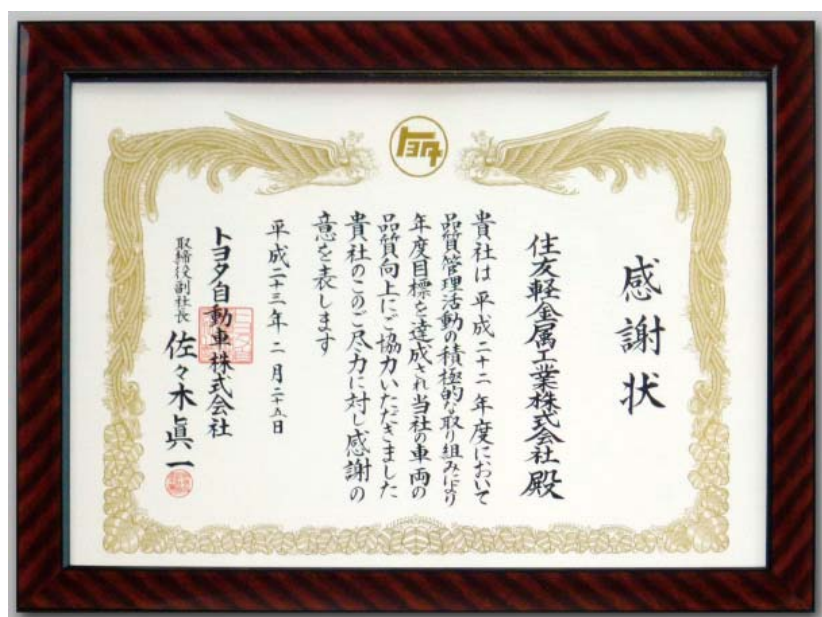 トヨタ
感謝状
住友軽金属工業株式会社 殿
貴社は平成二十二年度において
品質管理活動の積極的な取り組みにより
年度目標を達成され当社の車両の
品質向上にご協力いただきました
貴社のこのご尽力に対し感謝の
意を表します
平成二十三年二月二十五日
トヨタ自動車株式会社
取締役副社長 佐々木眞一